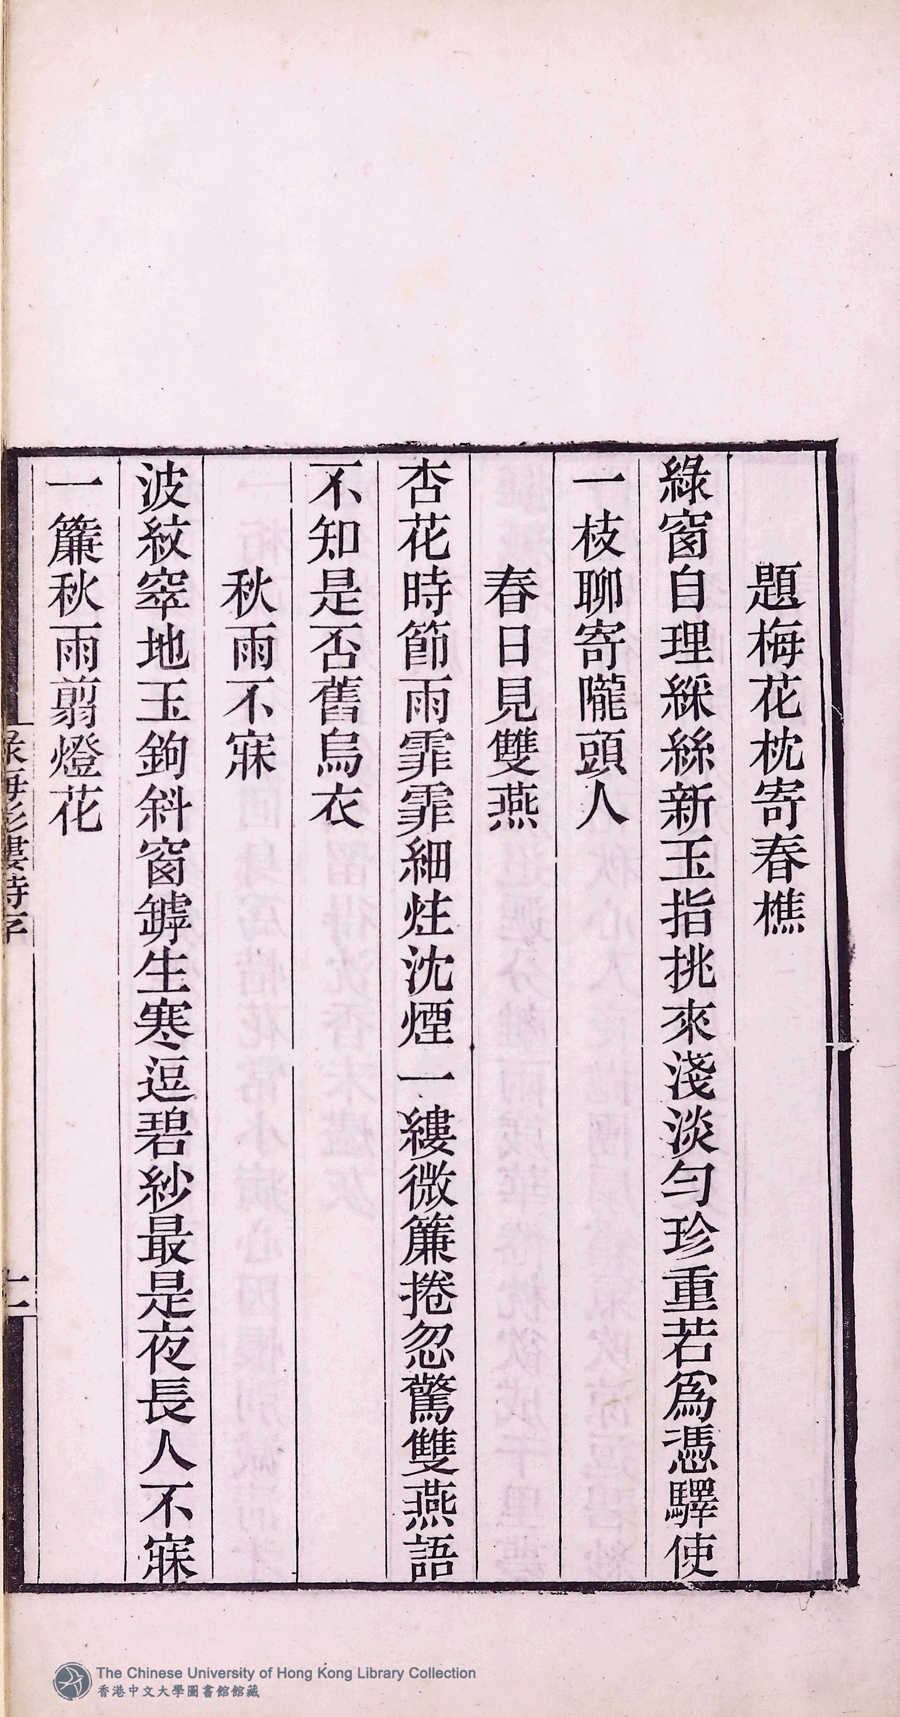 題梅花枕寄春樵
綠窗自理綵絲新玉指挑來淺淡勻珍重若爲憑驛使
一枝聊寄隴頭人
春日見雙燕
杏花時節雨霏霏細炷沈煙一縷微簾捲忽驚雙燕語
不知是否舊烏衣
秋雨不寐
波紋窣地玉鉤斜窗罅生寒逗碧紗最是夜長人不寐
一簾秋雨翦燈花
十一
The Chinese University of Hong Kong Library Collection
香港中文大學圖書館館藏